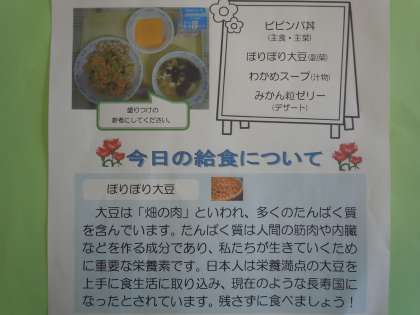 ビビンバ丼
(主食・主菜)
ぽりぽり大豆(副菜)
わかめスープ(汁物)
みかん粒ゼリー
(デザート)
盛りつけの
参考にしてください。
今日の給食について
ぽりぽり大豆
大豆は「畑の肉」といわれ、多くのたんぱく質
を含んでいます。たんぱく質は人間の筋肉や内臓
などを作る成分であり、私たちが生きていくため
に重要な栄養素です。日本人は栄養満点の大豆を
上手に食生活に取り込み、現在のような長寿国に
なったとされています。残さずに食べましょう！